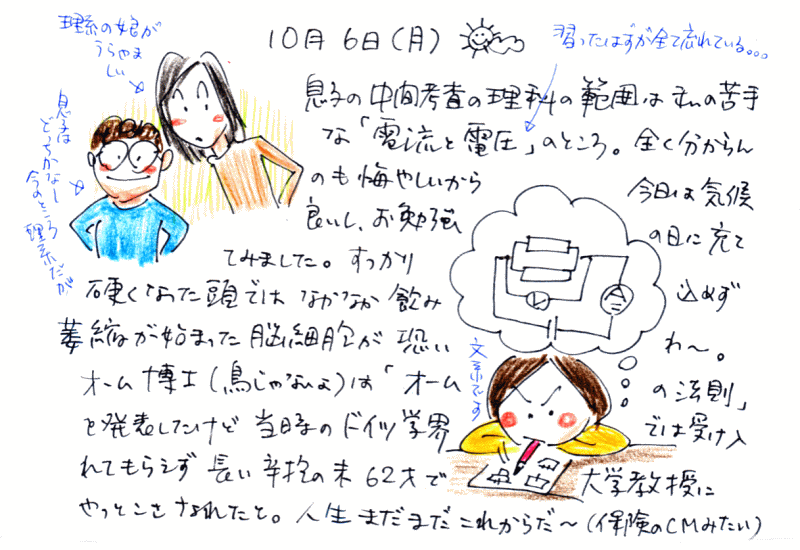 10月6日(月)
習ったはずが全て忘れている。。。
理系の娘が
うらやま
しい
息子は
どっちかなー
今のところ
理系だが
息子の中間考査の理科の範囲は私の苦手
な「電流と電圧」のところ。全く分からん
のも悔やしいから 今日は気候
良いし、お勉強 の日に充て
てみました。すっかり
硬くなった頭では なかなか飲み 込めず
萎縮が始まった脳細胞が 恐い わ〜。
オーム博士(鳥じゃないよ)は「オーム の法則」
を発表したけど当時のドイツ学界 では受け入
れてもらえず 長い辛抱の末62才で 大学教授に
やっとこさなれたと。人生まだまだこれからだ〜(保険のCMみたい)
V
A
文系です